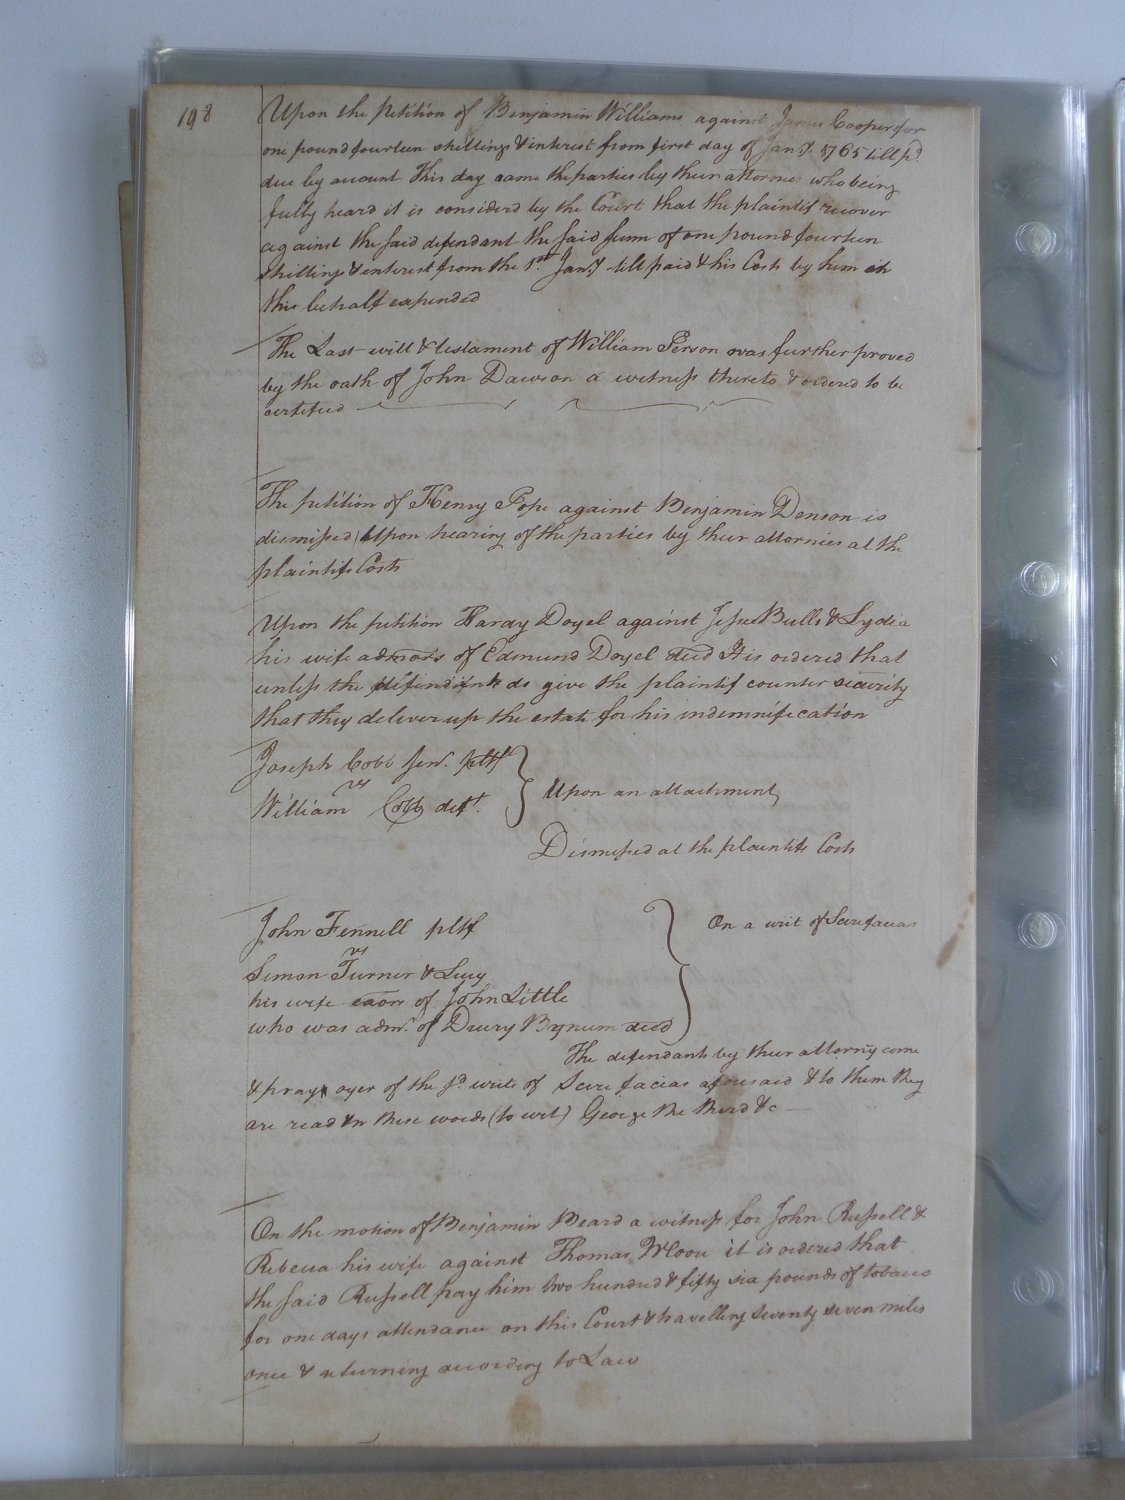 198
Upon the petition of Benjamin Williams against James Cooper for
one pound fourteen shillings & interest from first day of Jany. 1765 till pd.
due by account This day came the parties by their attornies who being
fully heard it is considerd by the Court that the plaintif recover
against the said defendant the said sum of one pound fourteen
shillings & interest from the 1st Jany till paid & his Costs by him in
this behalf expended
The Last will & testament of William Person was further proved
by the oath of John Dawson a witness thereto & ordered to be
certified
The petition of Henry Pope against Benjamin Denson is
dismissed Upon hearing of the parties by their attornies at the
plaintifs Costs
Upon the petition Hardy Doyel against Jesse Bulls & Lydia
his wife admors of Edmund Doyel decd It is ordered that
unless the defendants do give the plaintif counter security
that they deliver up the estate for his indemnification
Joseph Cobb senr. pltf
vs
William Cobb deft.
Upon an attachment
Dismissed at the plaintifs Costs
John Fennell pltf
vs
Simon Turner & Lucy
his wife exors of John Little
who was admr. of Drury Bynum decd
On a writ of Scirefacias
The defendants by their attorny come
& pray oyer of the sd. writs of Scire facias aforesaid & to them they
are read in these words (to wit) George the third &c
On the motion of Benjamin Beard a witness for John Russell &
Rebecca his wife against Thomas Moore it is ordered that
the said Russell pay him two hundred & fifty six pounds of tobacco
for one days attendance on this Court & travelling seventy seven miles
once & returning according to Law